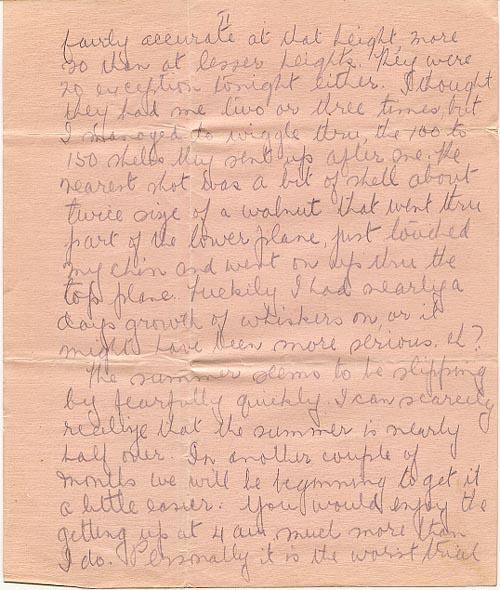 II
fairly accurate at that height, more
so than at lesser heights. They were
no exception tonight either. I thought
they had me two or three times, but
I managed to wiggle thru, the 100 to
150 shells they sent up after me. The
nearest shot was a bit of shell about
twice size of a walnut that went thru
part of the lower plane, just touched
my chin and went on up thru the
top plane. Luckily I had nearly a
days growth of whiskers on, or it
might have been more serious. eh?
The summer seems to be slipping
by fearfully quickly. I can scarcely
realize that the summer is nearly
half over. In another couple of
months we will be beginning to get it
a little easier. You would enjoy the
getting up at 4 am. much more than
I do. Personally it is the worst trial